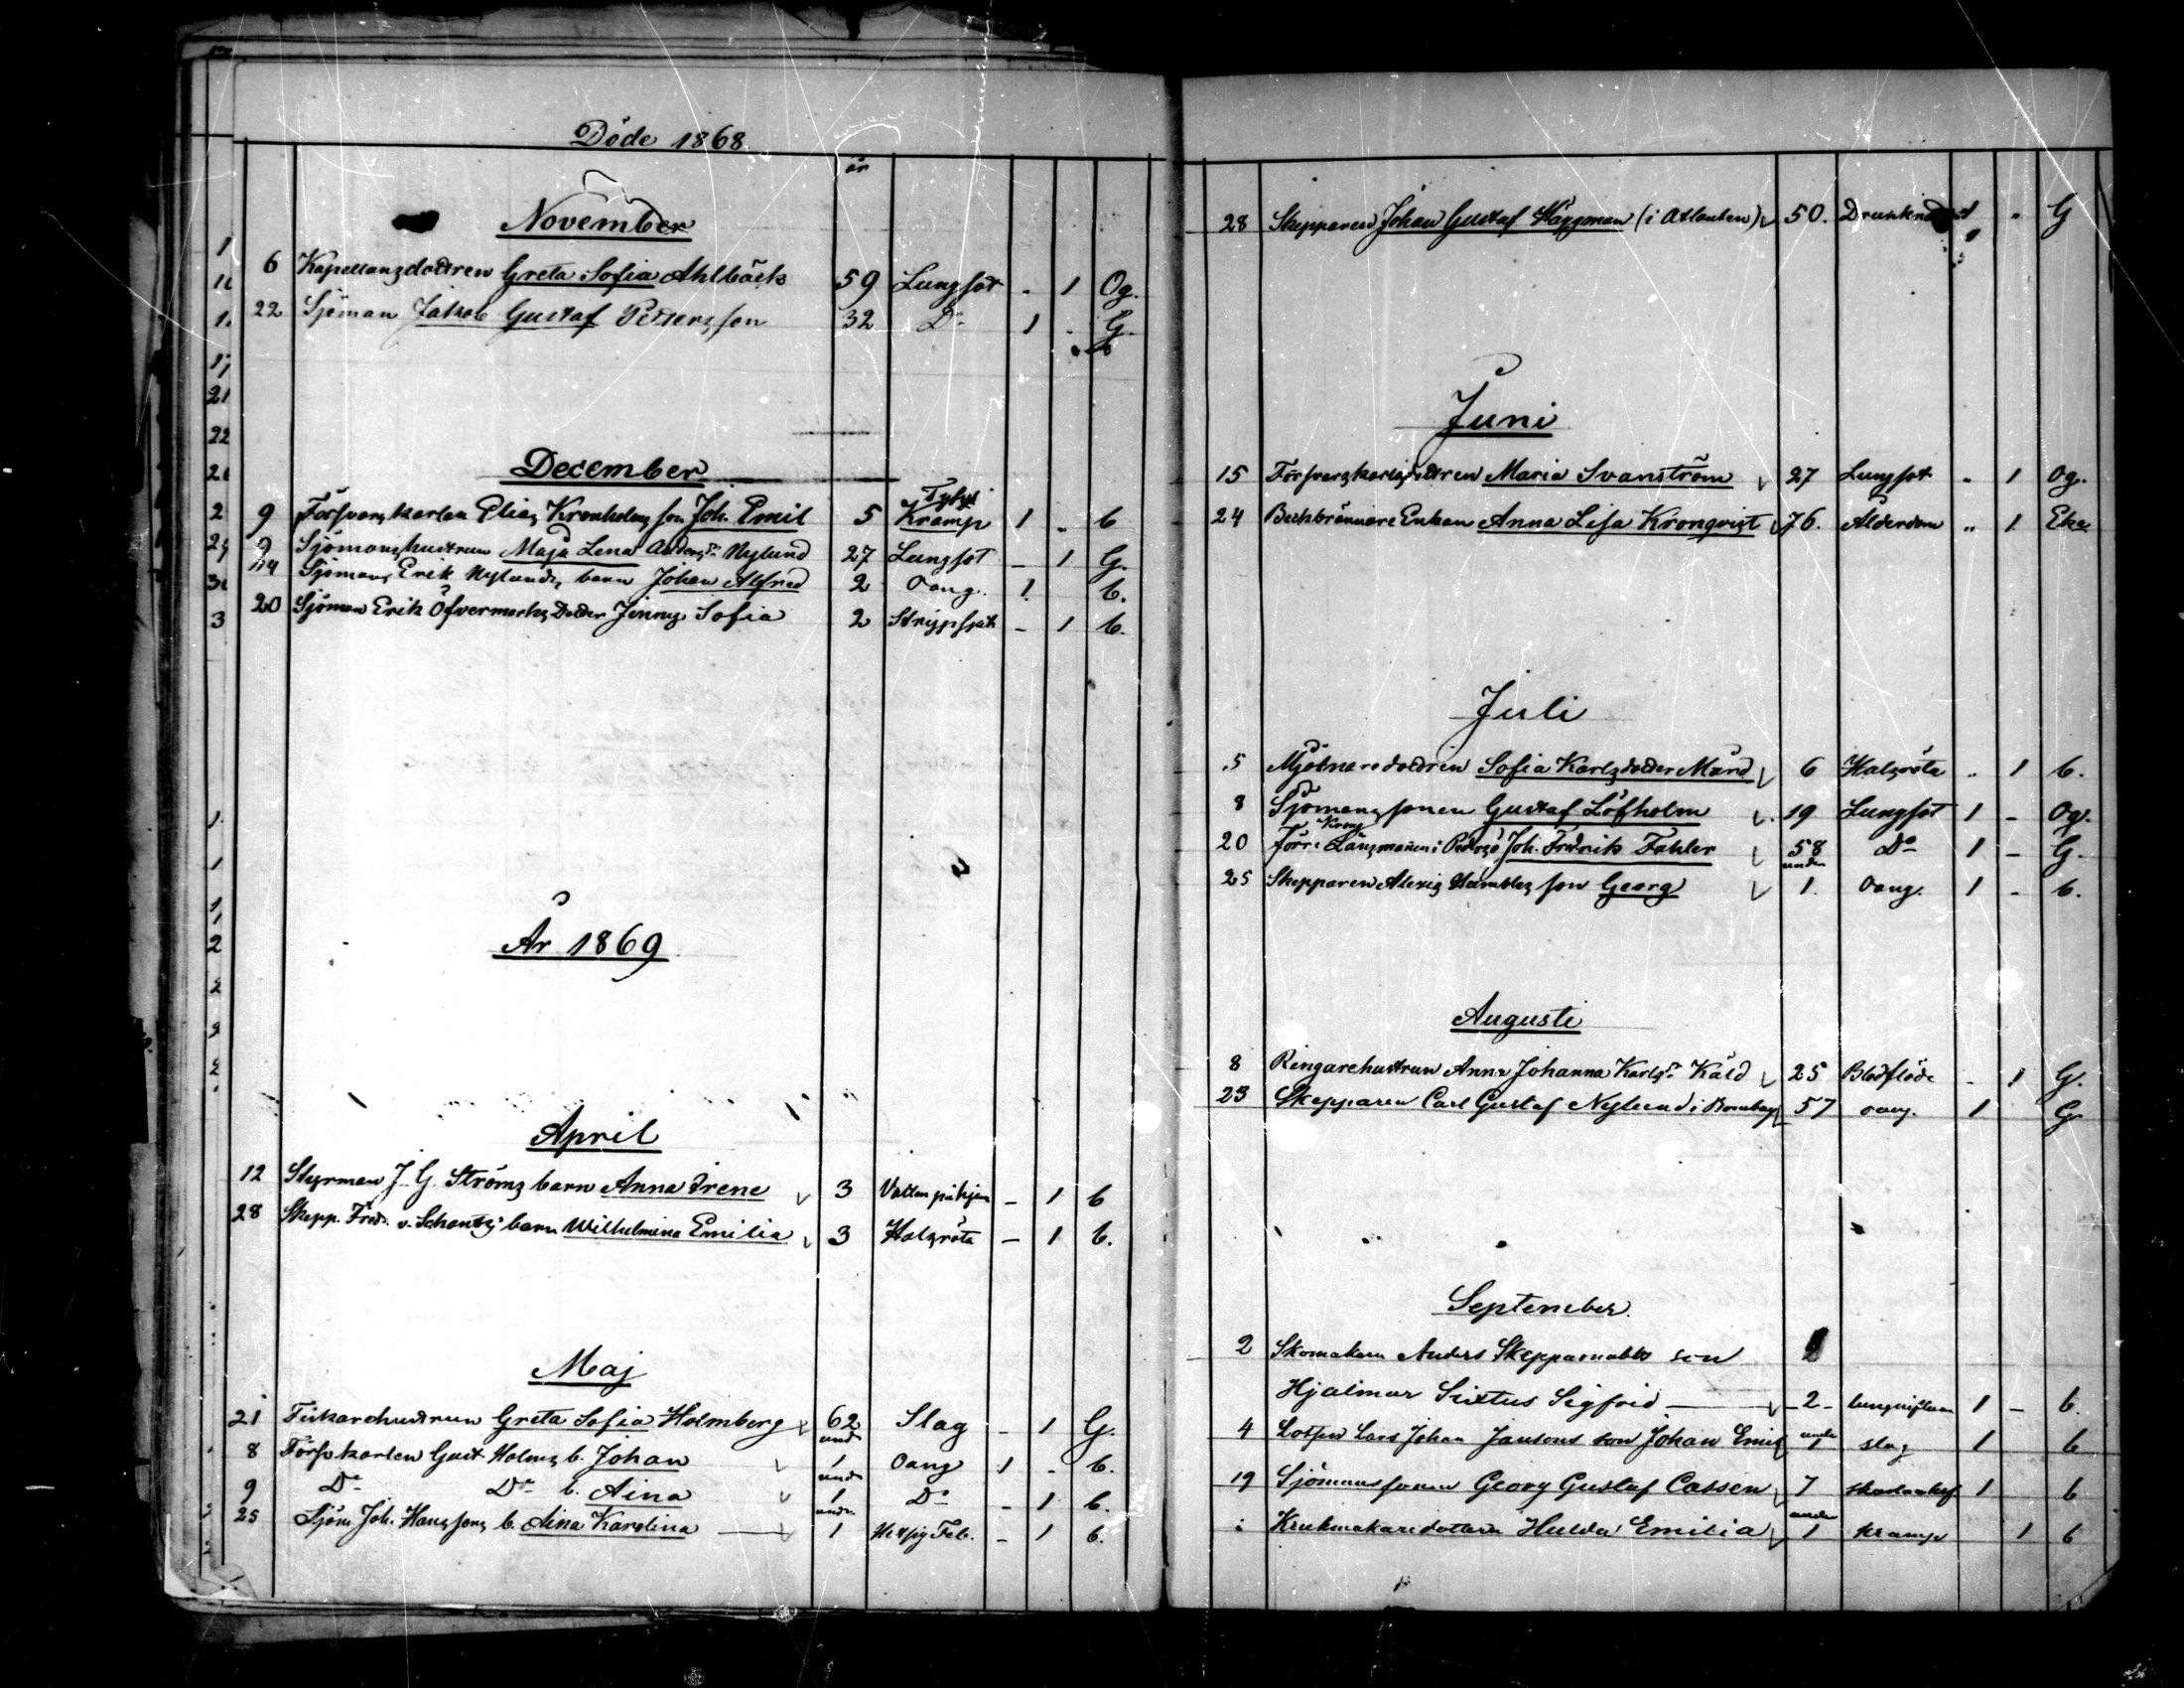 Döde 1868
år
November
6 Kapellansdottren Greta Sofia Ahlbäck 59 Lungsot - 1 Og.
22 Sjöman Jakob Gustaf Pettersson 32 Do 1 - G.
December
Tyfus
9 Försvarskarlen Elias Kronholms son Joh. Emil 5 Kramp 1 - b
9 Sjömanshustrun Maja Lena Andersdr Nylund 27 Lungsot - 1 G.
Sjömans Erik Nylunds barn Johan Alfred 2 Oang. 1 b.
20 Sjöman Erik Öfvermarks Dotter Jenny Sofia 2 Strypsjuk - 1 b.
År 1869
April
12 Styrman J. G. Ströms barn Anna Irene 3 Vatten på hjern - 1 b
28 Skepp. Fred. v. Schantz' barn Wilhelmina Emilia 3 Halsröta - 1 b.
Maj
21 Fiskarehustrun Greta Sofia Holmberg 62 Slag - 1 G.
8 Försvkarlen Gust Holms b. Johan und 1 Oang 1 - b.
9 Do Do b. Aina und 1 Do - 1 b.
25 Sjöm Joh. Hanssons b. Aina Karolina und 1 Hetsig Feb. - 1 b.
28 Skepparen Johan Gustaf Häggman (i Atlanten) 50. Drunknad 1 " G
Juni
15 Försvarskarlsdottren Maria Svanström 27 Lungsot " 1 Og.
24 Beckbrännare Enkan Anna Lisa Kronqvist 76. Ålderdom " 1 Eka
Juli
5 Mjölnaredottren Sofia Karlsdotter Mård 6 Halsröta " 1 b.
8 Sjömanssonen Gustaf Löfholm 19 Lungsot 1 - Og.
Krono
20 Förre Länsmannen i Pedersö Joh. Fredrik Fahler 58 Do 1 - G.
25 Skepparen Alexis Hambles son Georg under 1. Oang. 1 - b.
Augusti
8 Ringarehustrun Anna Johanna Karlsdr Kåld 25 Blodflöde - 1 G.
23 Skepparen Carl Gustaf Nylund i Bombay 57 oang. 1 G
September
2 Skomakaren Anders Skepparnabbs son
Hjalmar Sixtus Sigfrid - 2 - lunginflam 1 - b.
4 Lotsen Lars Johan Jansons son Johan Emil under 1 slag 1 b
19 Sjömanssonen Georg Gustaf Cassén 7 1 b
Krukmakaredottern Hulda Emilia under 1 kramp 1 b